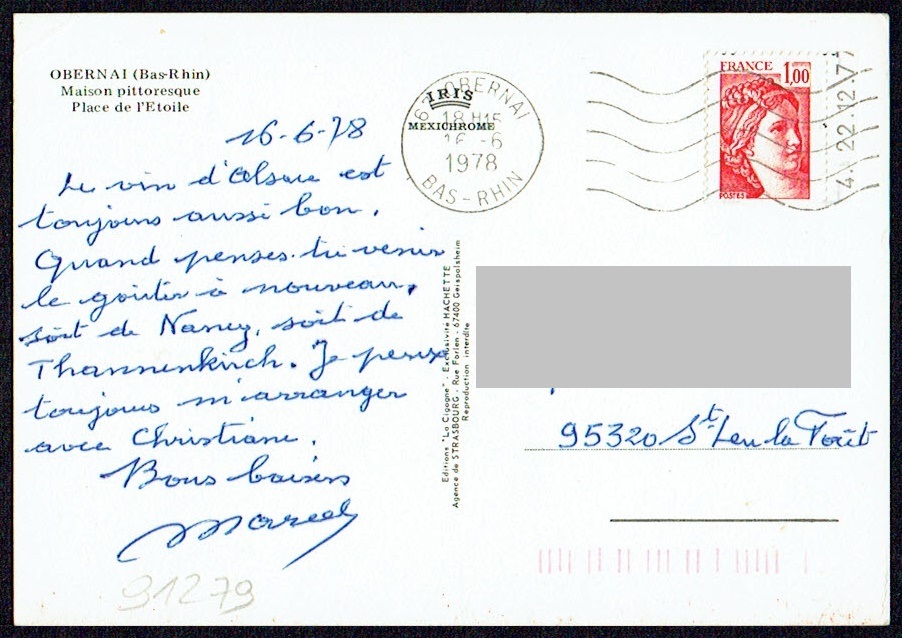 OBERNAI (Bas-Rhin)
Maison pittoresque
Place de l'Etoile
IRIS
MEXICHROME
67 OBERNAI
18 H15
16 -6
1978
BAS-RHIN
FRANCE 1,00
POSTES
4. 22.12.77
16-6-78
Le vin d'Alsace est
toujours aussi bon.
Quand penses-tu venir
le goûter à nouveau,
soit de Nancy, soit de
Thannenkirch. Je peux
toujours m'arranger
avec Christiane.
Bons baisers
Marcel
91279
Editions "La Cigogne" - Exclusivité HACHETTE
Agence de STRASBOURG - Rue Forlen - 67400 Geispolsheim
Reproduction interdite
95320 St Leu la Forêt